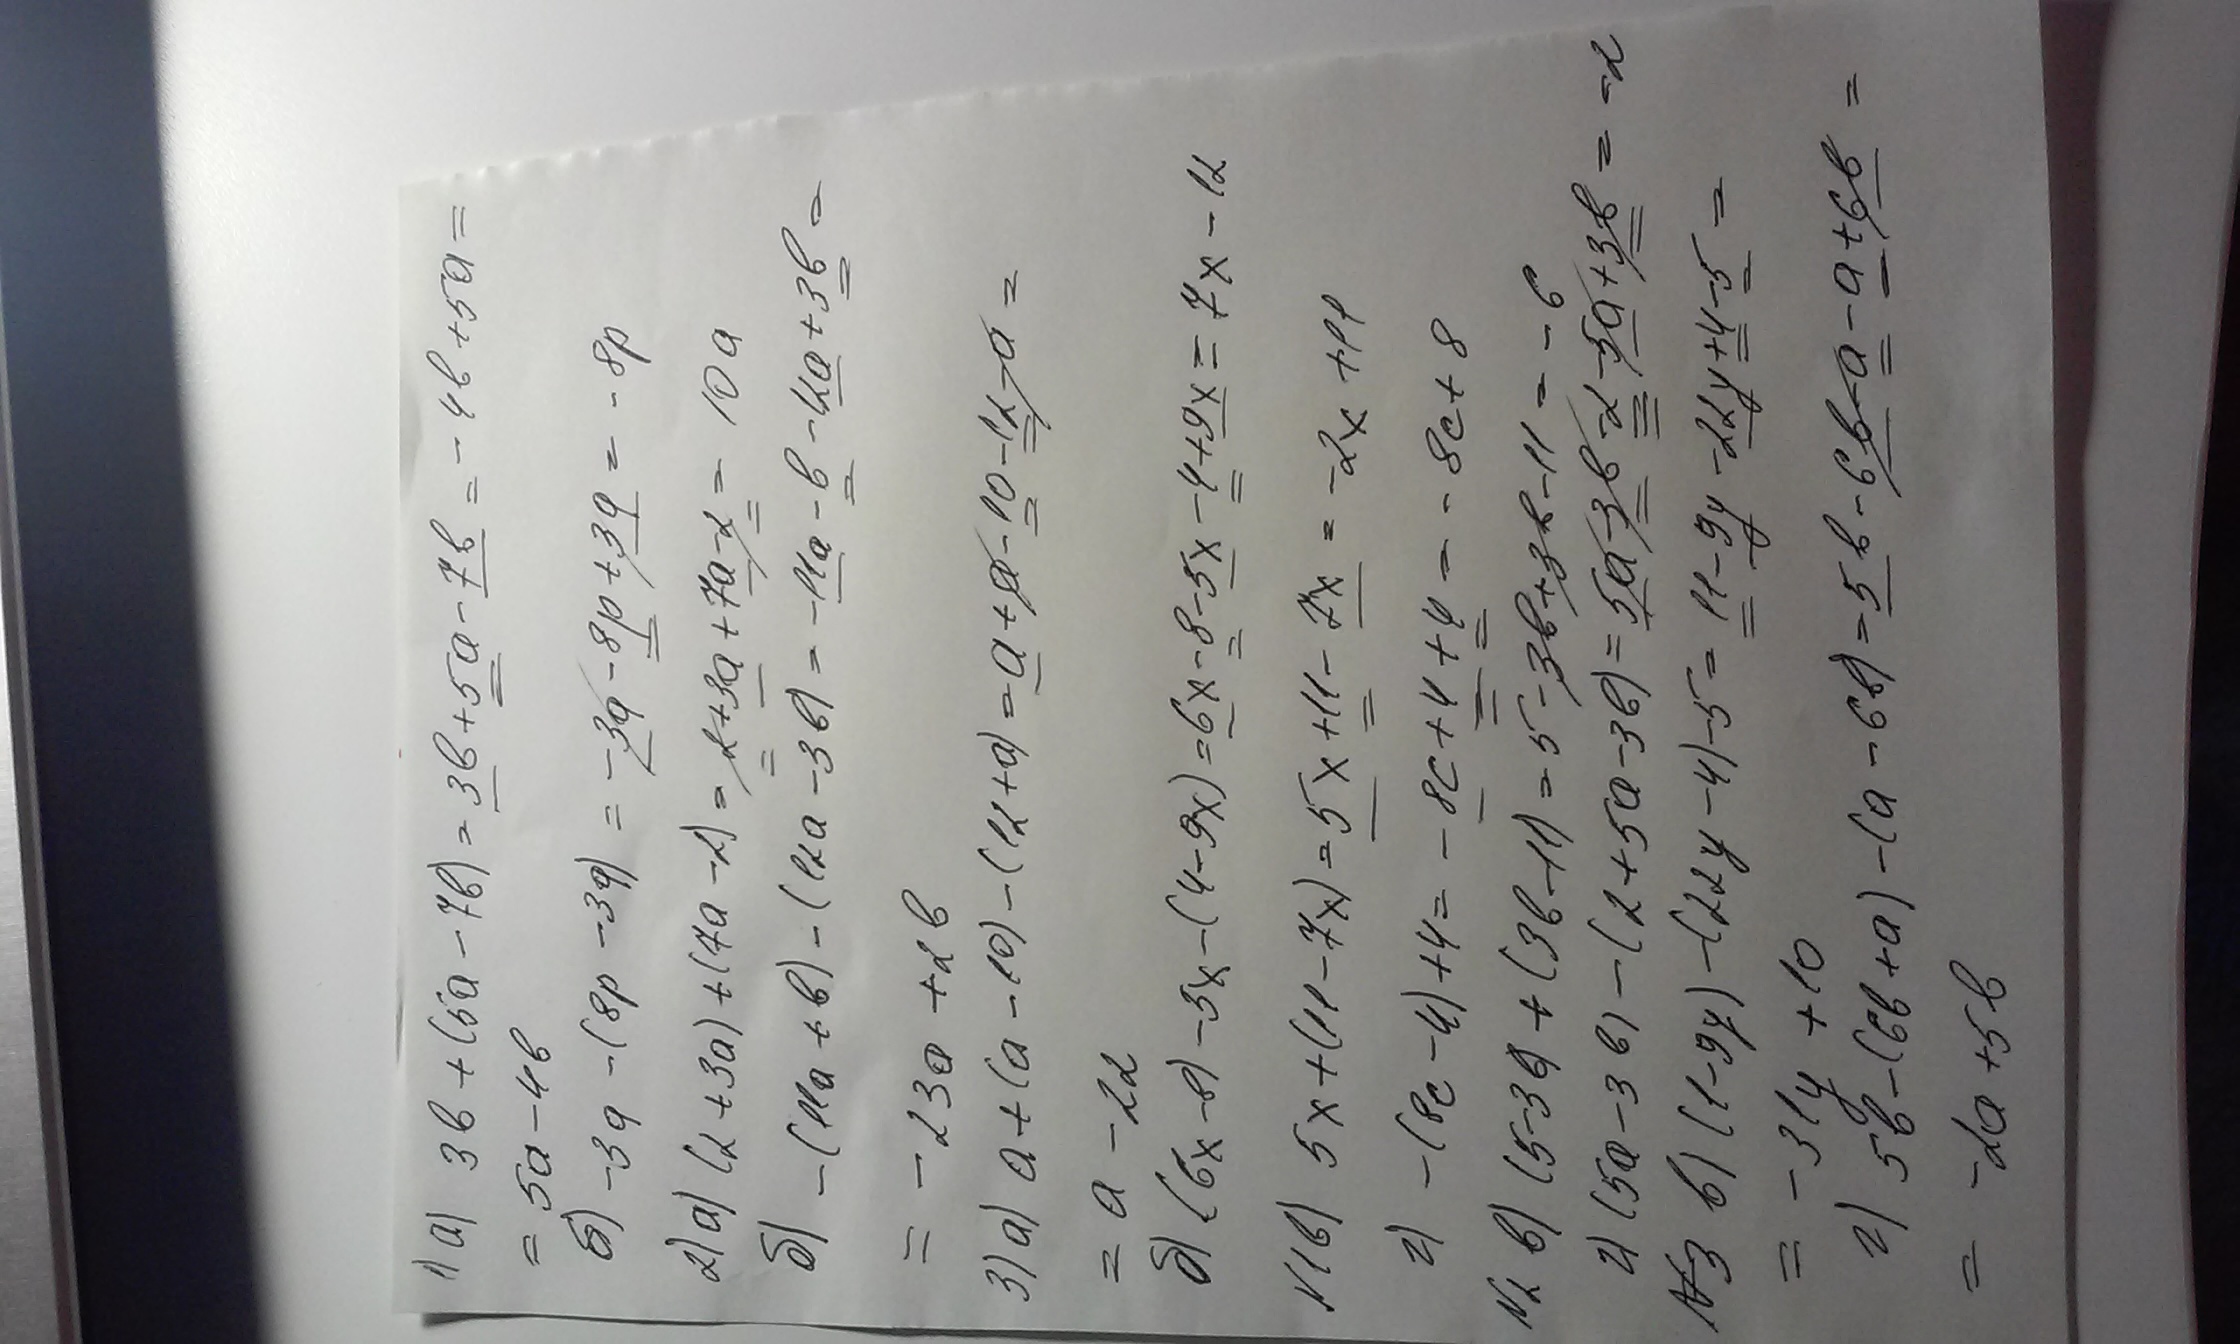 1) а) 3в + (5а - 7в) = 3в + 5а - 7в = - 4в + 5а =
= 5а - 4в
б) -3q - (8p - 3q) = - 3q - 8p + 3q = - 8p
2) а) (2 + 3а) + (7а - 2) = 2 + 3а + 7а - 2 = 10а
б) - (11а + в) - (12а - 3в) = - 11а - в - 12а + 3в =
= - 23а + 2в
3) а) а + (а - 10) - (12 + а) = а + а - 10 - 12 - а =
= а - 22
б) (6х - 8) - 5х - (4 - 9х) = 6х - 8 - 5х - 4 + 9х = 7х - 12
N1 в) 5х + (11 - 7х) = 5х + 11 - 7х = - 2х + 11
г) - (8с - 4) + 4 = - 8с + 4 + 4 = - 8с + 8
N2 в) (5 - 3в) + (3в - 11) = 5 - 3в + 3в - 11 = - 6
г) (5а - 3в) - (2 + 5а - 3в) = 5а - 3в - 2 - 5а + 3в = - 2
N3 в) (1 - 9у) - (22у - 4) - 5 = 11 - 9у - 22у + 4 - 5 =
= - 31у + 10
г) 5в - (6в + а) - (а - 6в) = 5в - 6в - а - а + 6в =
= - 2а + 5в